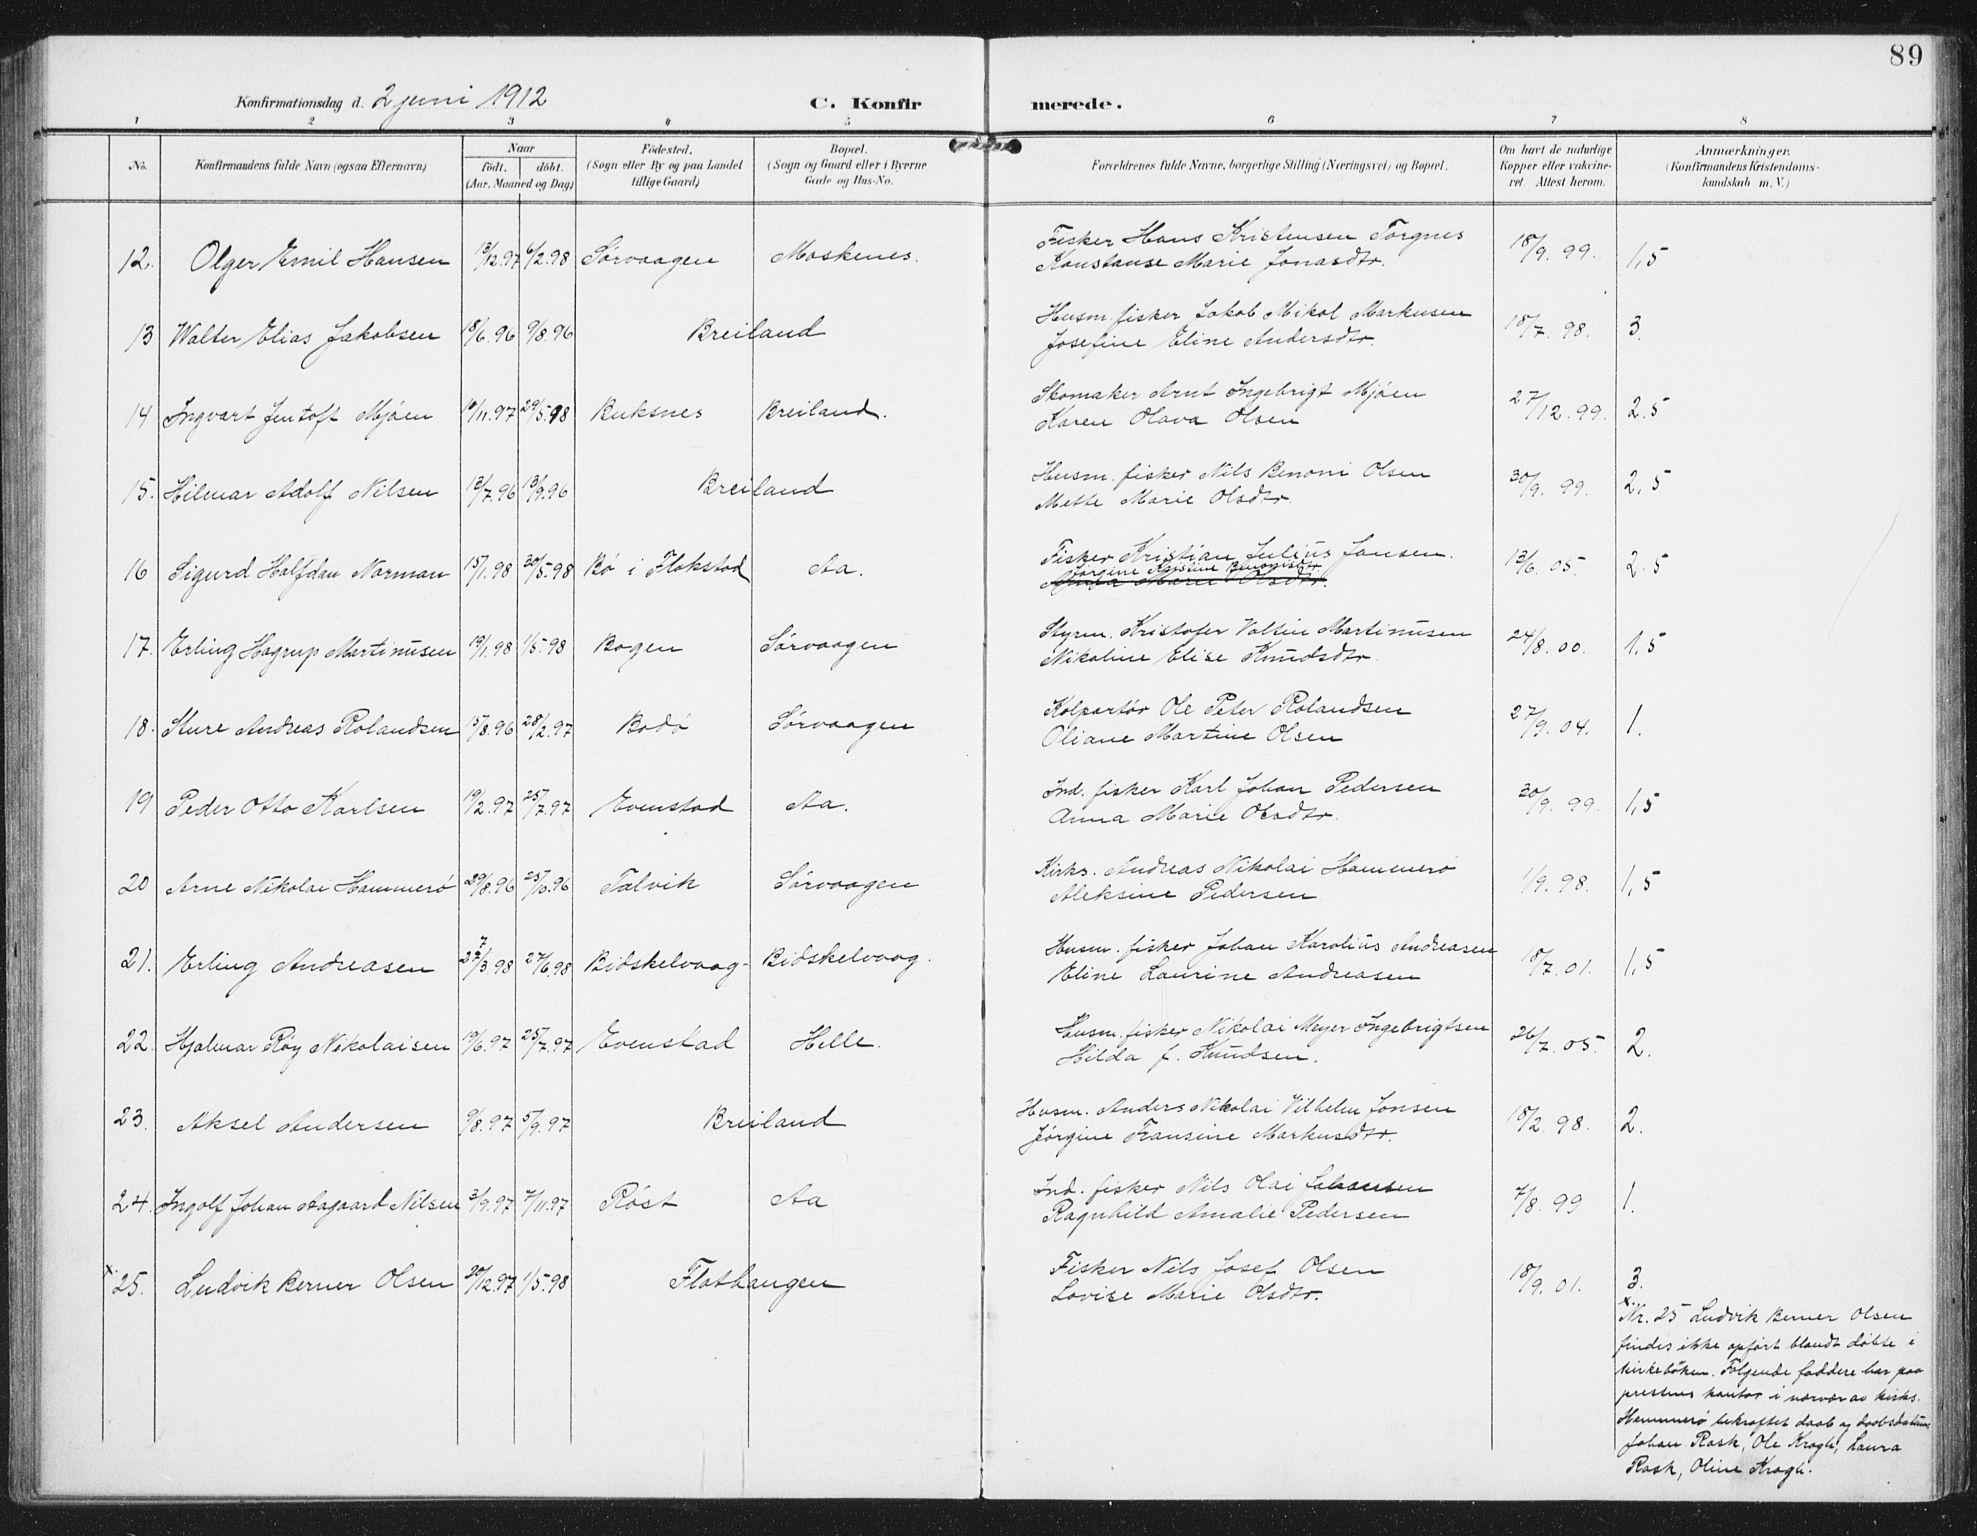 89
Konfirmationsdag d. 2 juni 1912
C. Konfirmerede.
1 2 3 4 5 6 7 8
No. Konfirmandens fulde Navn (ogsaa Efternavn) Naar födt. döbt. (Aar, Maaned og Dag) Födested. (Sogn eller By og paa Landet tillige Gaard) Bopæl. (Sogn og Gaard eller i Byerne Gade og Hus-No. Forældrenes fulde Navne, borgerlige Stilling (Næringsvei) og Bopæl. Om havt de naturlige Kopper eller vakcineret. Attest herom. Anmærkninger. (Konfirmandens Kristendomskundskab m. V.)
12. Olger Emil Hansen 13/12.97 6/2.98 Sørvaagen Moskenes. Fisker Hans Kristensen Torgnes 18/9.99. 1,5
Konstanse Marie Jonasdtr.
13 Walter Elias Jakobsen 18/6.96 9/8.96 Breiland Husm. fisker Jakob Mikal Markusen 18/7.98. 3.
Josefine Eline Andersdtr.
14 Ingvart Jentoft Mjøen 10/11.97 29/5.98 Buksnes Breiland. Skomaker Arnt Ingebrigt Mjøen 27/12.99. 2.5
Karen Olava Olsen
15. Hilmar Adolf Nilsen 13/7.96 13/9.96 Breiland Husm. fisker Nils Benoni Olsen 30/9.99. 2,5
Mette Marie Olsdtr.
16 Sigurd Halfdan Norman 15/1.98 30/5.98 Bø i Flakstad Aa. Fisker Kristian Julius Jansen. 13/6.05. 2.5
Jørgine Kristine Benonisdtr
Anna Marie Olsdtr.
17. Erling Hagrup Martinusen 19/1.98 1/5.98 Bogen Sørvaagen Styrm. Kristofer Valtin Martinusen 24/8.00. 1,5
Nikoline Elise Knudsdtr.
18. Sture Andreas Rolandsen 15/8.96 28/2.97 Bodø Sørvaagen Kolportør Ole Peter Rolandsen 27/9.04. 1.
Oliane Martine Olsen
19 Peder Otto Karlsen 19/2.97 25/7.97 Evenstad Aa. Ind. fisker Karl Johan Pedersen 30/9.99. 1,5
Anna Marie Olsdtr.
20 Arne Nikolai Hammerø 29/8.96 25/10.96 Talvik Sørvaagen Kirks. Andreas Nikolai Hammerø 1/9.98. 1,5
Aleksine Pedersen
21. Erling Andreasen 27/3.98 27/6.98 Bidskelvaag Bidskelvaag. Husm. fisker Johan Karolius Andreasen 18/7.01. 1,5
Eline Laurine Andreasen
22. Hjalmar Røy Nikolaisen 19/6.97 25/7.97 Evenstad Helle. Husm. fisker Nikolai Meyer Ingebrigtsen 26/7.05. 2.
Hilda f. Knudsen.
23. Aksel Andersen 9/8.97 5/9.97 Breiland Husm. Anders Nikolai Vilhelm Jonsen 18/2.98. 2.
Jørgine Fransine Markusdtr.
24. Ingolf Johan Aagaard Nilsen 3/9.97 7/11.97 Røst Aa Ind. fisker Nils Olai Johansen 7/8.99 1.
Ragnhild Amalie Pedersen
x. 25. Ludvik Berner Olsen 20/12.97 1/5.98 Flathaugen Fisker Nils Josef Olsen 18/9.01. 3.
Lovise Marie Olsdtr.
x.
Nr. 25 Ludvik Berner Olsen
findes ikke opført blandt døbte i
kirkeboken. Følgende faddere har paa
prestens kontor i nærvær av kirks.
Hammerø bekræftet daab og daabsdatum:
Johan Rask, Ole Krogh, Laura
Rask, Oline Krogh.